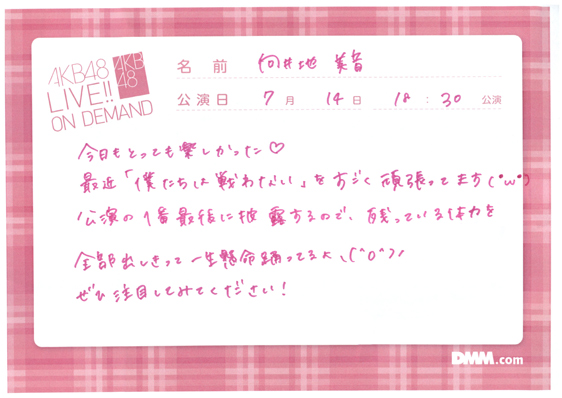 AKB48
LIVE!!
ON DEMAND
AKB
48
名前 向井地 美音
公演日 7月 14日 18:30 公演
今日もとっても楽しかった♡
最近「僕たちは戦わない」をすごく頑張ってます(・ω・)
公演の1番最後に披露するので、残っている体力を
全部出しきって一生懸命踊ってるよ、(^o^)ノ
ぜひ注目してみてください!
DMM.com